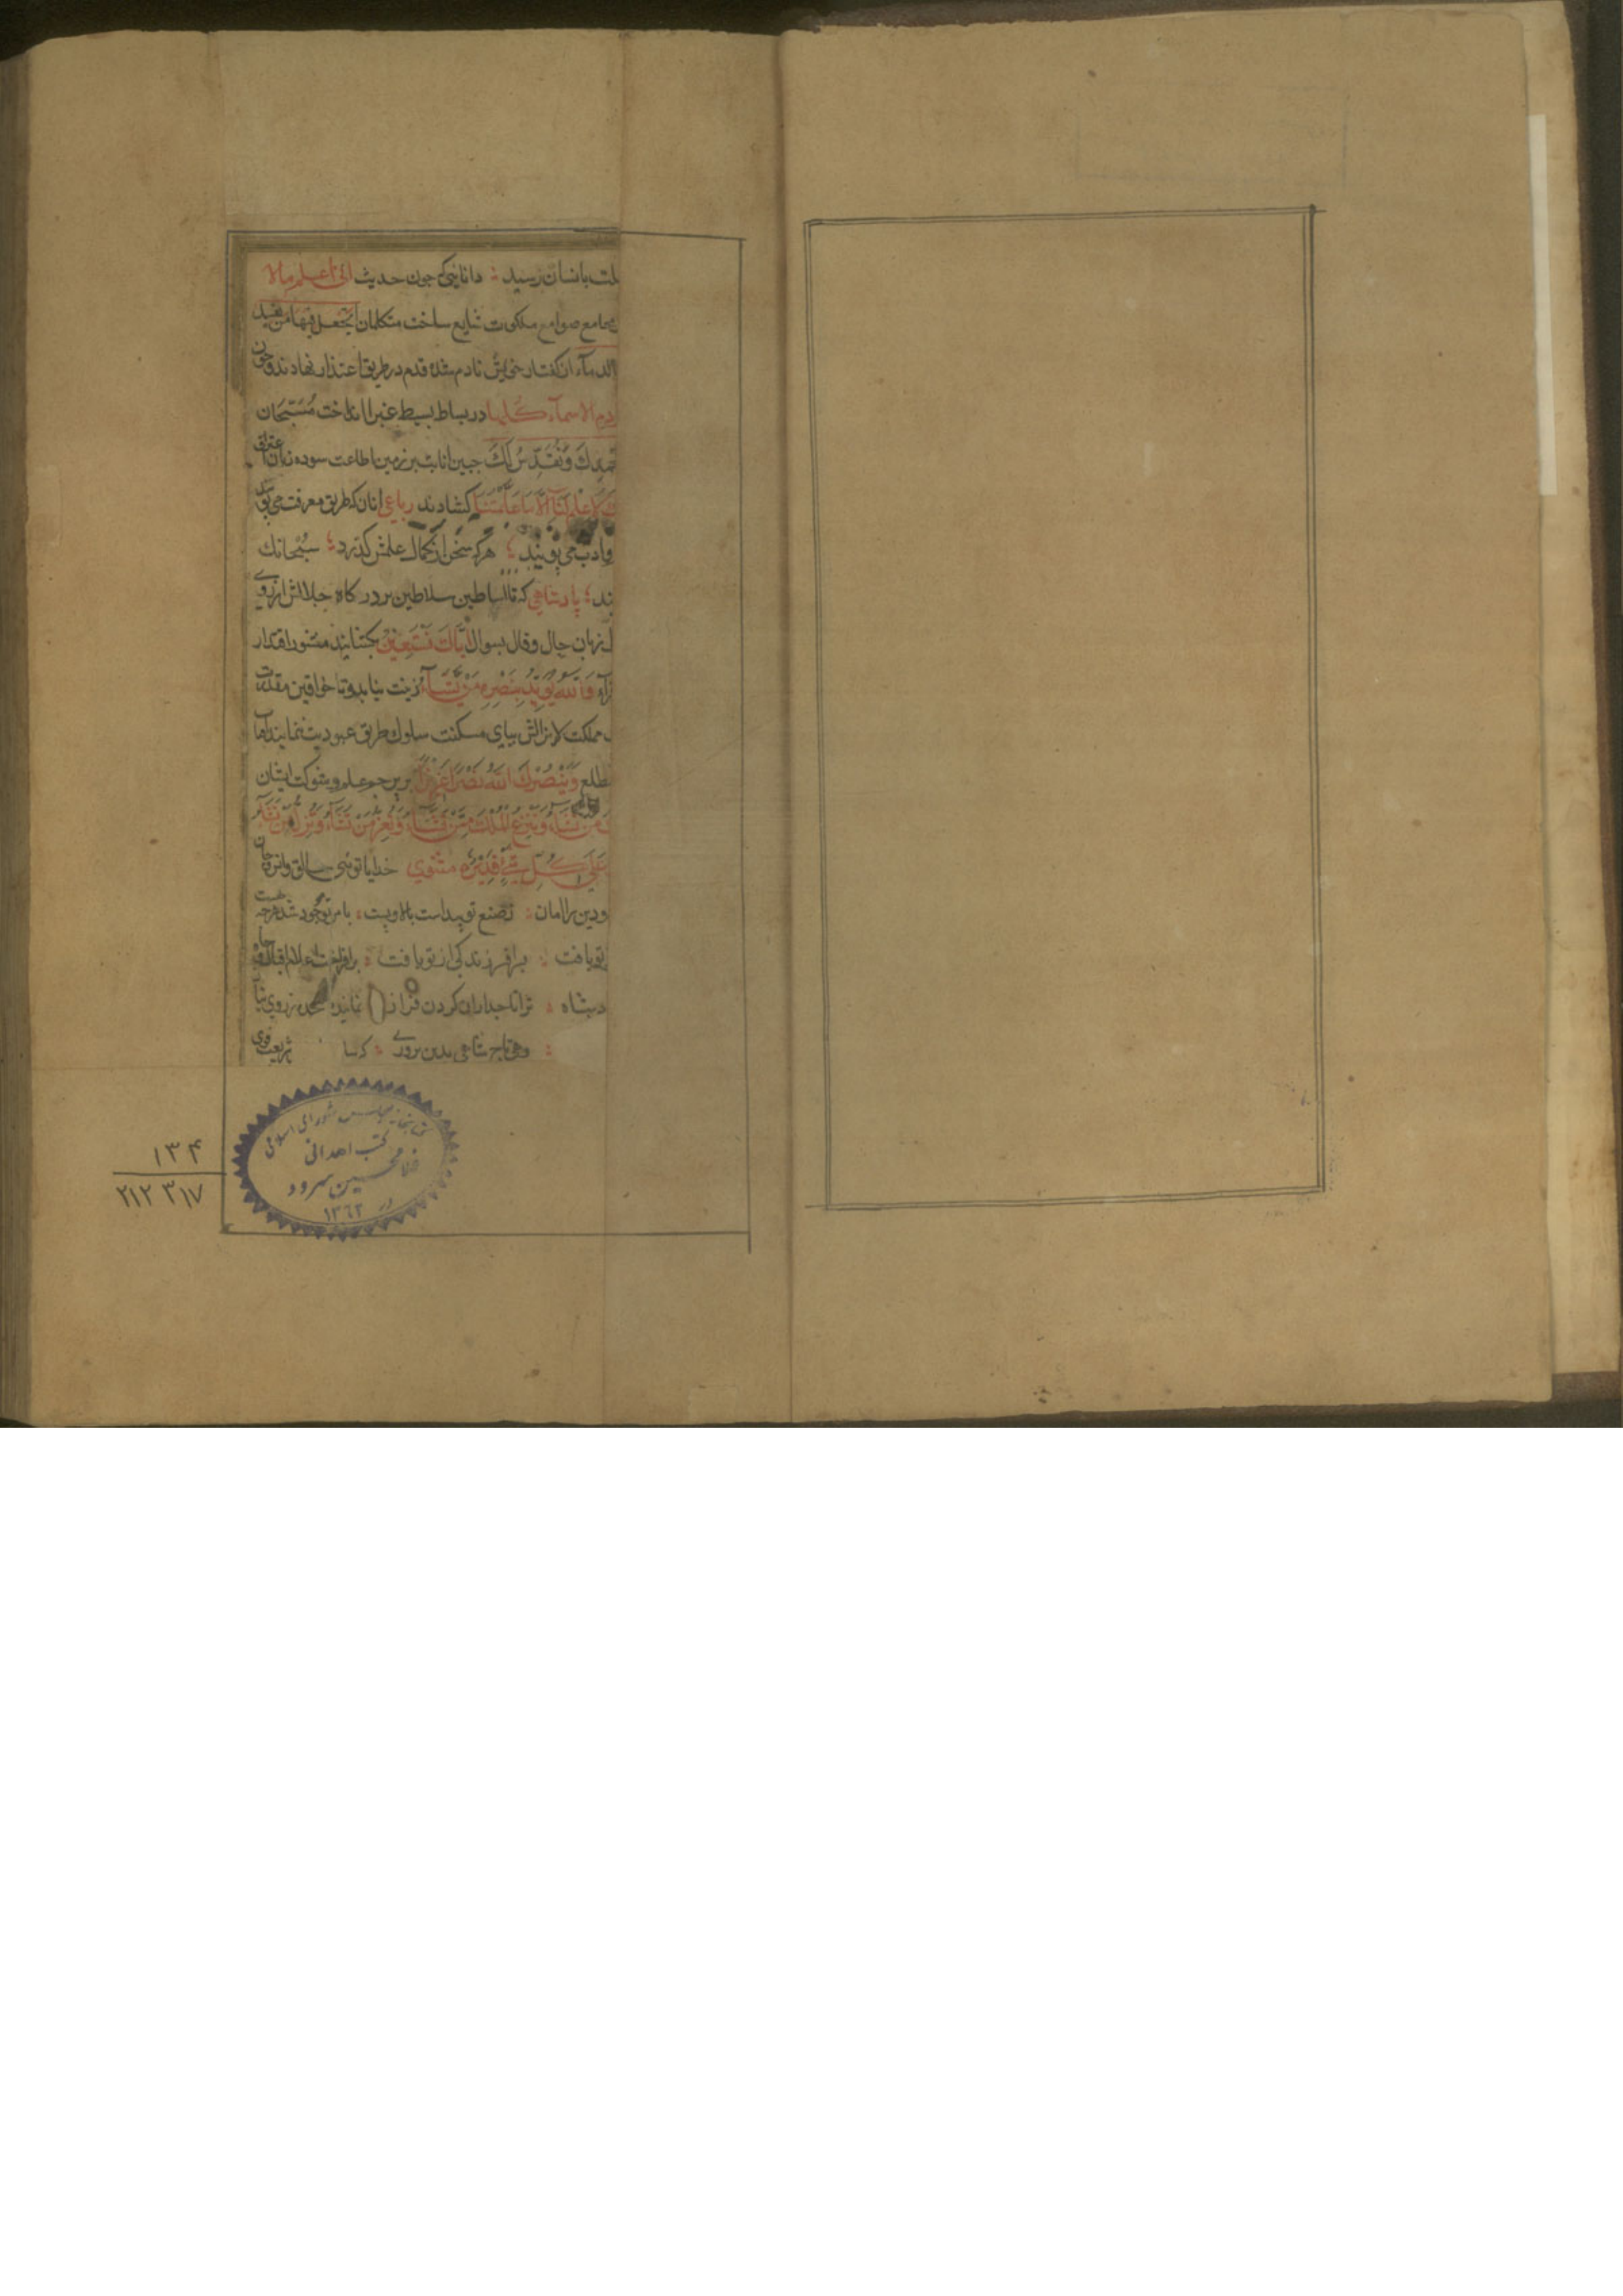 لت بانسان رسید ؛ دانایی که چون حدیث انی اعلم مالا
مجامع صوامع ملکوت شایع ساخت متکلمان اتجعل فیها من یفسد
الدماء از گفتار خویش نادم شده قدم در طریق اعتذار نهادند و چون
ادم الاسمآء کلها در بساط بسیط غبرا انداخت مُسَبّحان
بحمدك وَنُقَدِّسُ لَكَ جبین انابت بر زمین اطاعت سوده زبان اعتراف
لَا عِلْمَ لَنَآ اِلَّا مَا عَلَّمْتَنَا گشادند رباعی انان که طریق معرفت می
وادب می پویند ؛ هرگه سخن از کمال علمش گذرد ؛ سُبْحانك
ند ؛ پادشاهی که تا اساطین سلاطین بر درگاه جلالش از روی
زبان حال و قال بسوال اِیَّاكَ نَسْتَعِیْنُ بگشایند منشور اقتدار
وَاللهُ یُؤَیِّدُ بِنَصْرِهِ مَنْ یَّشَآءُ زینت نیابد و تا خواقین مقدرت
مملکت لایزالش بپای مسکنت سلوك طریق عبودیت ننمایند
مطلع وَیَنْصُرَكَ اللهُ نَصْرًا عَزِیْزًا بر پرچم علم و شوکت ایشان
مَنْ تَشَآءُ وَتَنْزِعُ الْمُلْكَ مِمَّنْ تَشَآءُ وَتُعِزُّ مَنْ تَشَآءُ وَتُذِلُّ مَنْ تَشَآءُ
عَلٰی کُلِّ شَیْءٍ قَدِیْرٌ مثنوی خدایا توئی خالق انس و جان
ودین را امان ؛ ز صنع تو پیداست بالا و پست ؛ بامر تو موجود شد هرچه هست
تو یافت ؛ برافرزندگی از تو یافت ؛ برافراخت اعلام اقبال و جاه
؛ ترا تاجداران گردن فراز نمایند از روی
؛ وهی تاج شاهی بدین پروری ؛
کتابخانه مجلس شورای اسلامی
کتب اهدائی
غلامحسین سرود
در ۱۳٦۲
۱۳۴
۲۱۲۳۱۷